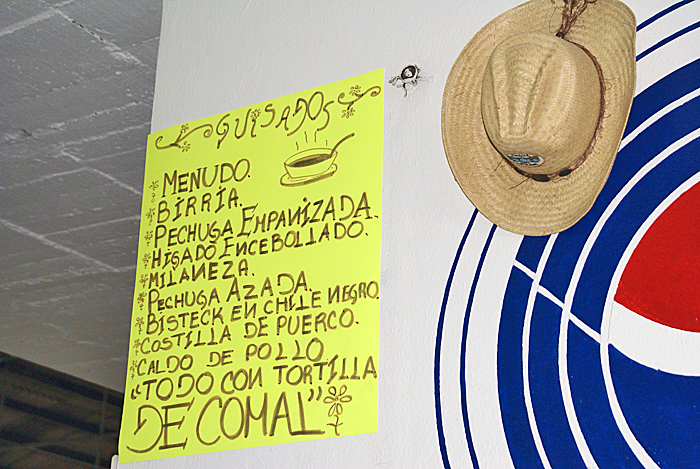 GUISADOS
MENUDO.
BIRRIA.
PECHUGA EMPANIZADA.
HIGADO ENCEBOLLADO.
MILANEZA.
PECHUGA AZADA.
BISTECK EN CHILE NEGRO.
COSTILLA DE PUERCO.
CALDO DE POLLO
"TODO CON TORTILLA
DE COMAL"